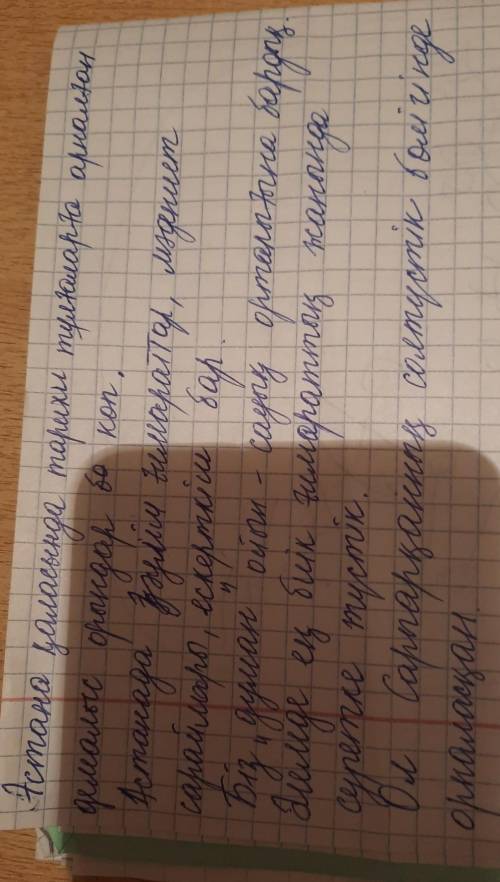 Астана қаласында тарихи тұлғаларға арналған
демалыс орындар да көп.
Астанада әрүйлі ғимараттар, мәдениет
сарайлары, ескерткіш бар.
Біз "Думан" ойын-сауық орталығына бардық.
Әлемде ең биік ғимараттың жанында
суретке түстік.
Ол Сарыарқаның солтүстік бөлігінде
орналасқан.